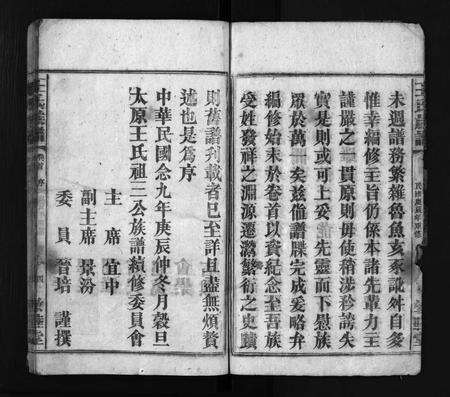 未週譜務繁雜魯魚亥豕訛舛自多
惟幸編修主旨仍係本諸先輩力主
謹嚴之一貫原則毋使稍涉矜誇失
實是則或可上妥先靈而下慰族
眾於萬一矣茲值譜牒完成爰略弁
編修始末於卷首以資紀念至吾族
受姓發祥之淵源遷

繁衍之史蹟
則舊譜刋載者巳至詳且盡無煩贅
述也是為序
中華民國念九年庚辰仲冬月穀旦
太原王氏祖三公族譜續修委員會
主席宜中
副主席景汾
委員晉培謹撰